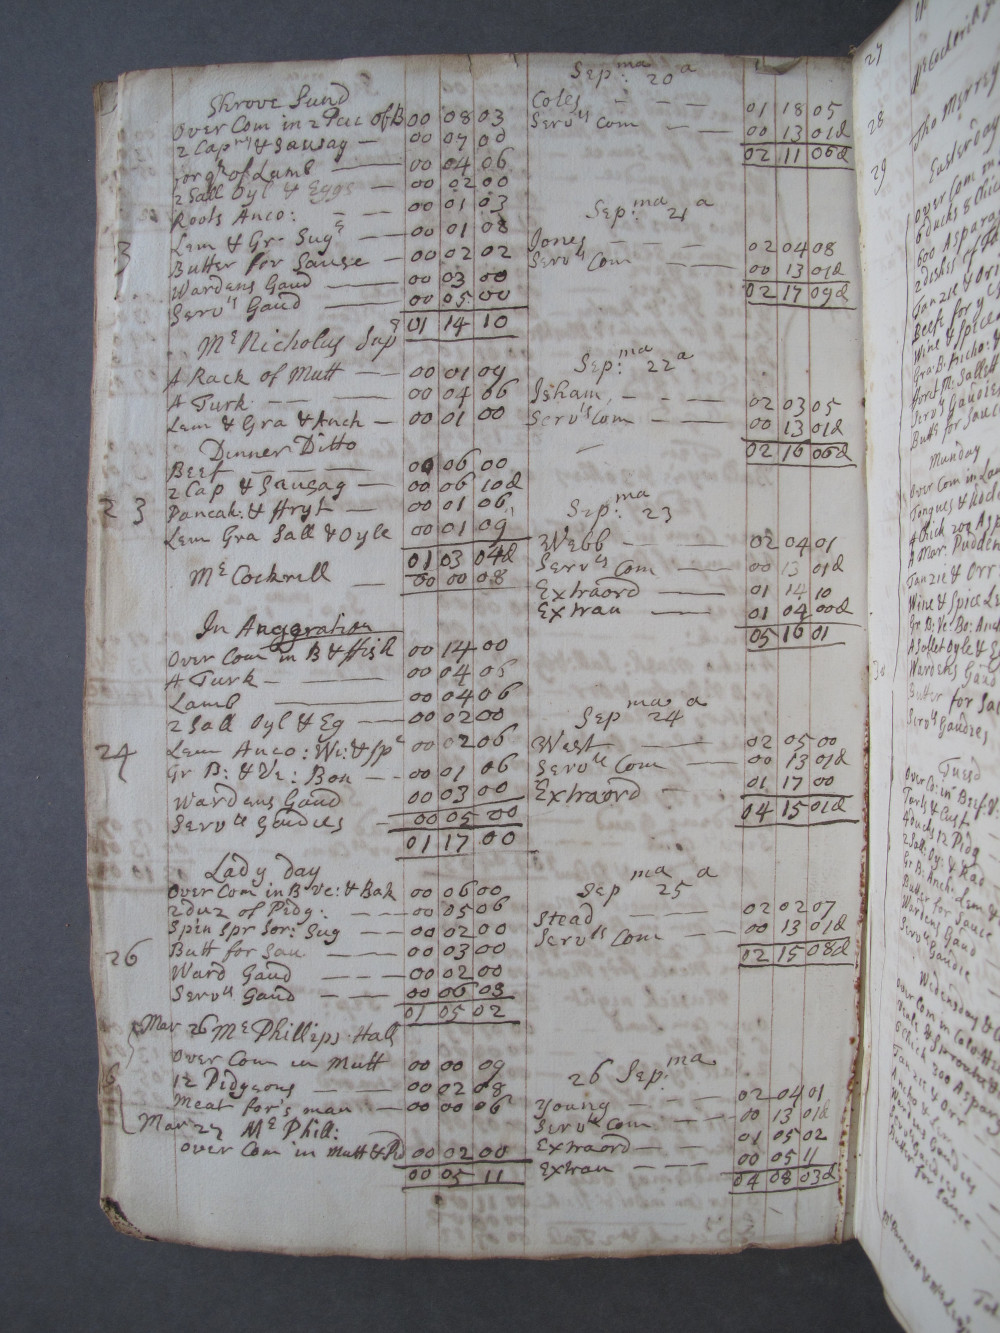 Shrove Sund
Over Com in 2 Pec of B 00 08 03
2 Capns & Sausag 00 07 0d
forqr of Lamb 00 04 06
2 Sall Oyl & Eggs 00 02 00
Roots Anco: 00 01 03
Lem & Gr Sugr 00 01 08
3
Butter for Sause 00 02 02
Wardens Gaud 00 03 00
Servts Gaud 00 05 00
01 14 10
Mr Nicholus Supr
A Rack of Mutt 00 01 09
A Turk 00 04 06
Lem & Gra & Anch 00 01 00
Dinner Ditto
Beef 00 06 00
2 Cap & Sausag 00 06 10d
23
Pancak: & ffryt 00 01 06
Lem Gra Sall & Oyle 00 01 09
01 03 04d
Mr Cockrill 00 00 08
In Anggration
Over Com in B & ffish 00 14 00
A Turk 00 04 06
Lamb 00 04 06
2 Sall Oyl & Eg 00 02 00
24
Lem Anco: Wi: & Spc 00 02 06
Gr B: & Ve: Bon 00 01 06
Wardens Gaud 00 03 00
Servts Gaudies 00 05 00
01 17 00
Lady day
Over Com in B Ve: & Bak 00 06 00
2 duz of Pidg: 00 05 06
Spin Spr Sor: Sug 00 02 00
26
Butt for Sau 00 03 00
Ward Gaud 00 02 00
Servts Gaud 00 06 03
01 05 02
Mar 26 Mr Phillips Hall
Over Com in Mutt 00 00 09
12 Pidgeons 00 02 08
Meat for s man 00 00 06
Mar 27 Mr Phill:
over Com in Mutt & Pd 00 02 00
00 05 11
Sepma: 20a
Coles 01 18 05
Servts Com 00 13 01d
02 11 06d
Sep:ma 21a
Jones 02 04 08
Servts Com 00 13 01d
02 17 09d
Sep:ma 22a
Isham 02 03 05
Servts Com 00 13 01d
02 16 06d
Sep:ma 23
Webb 02 04 01
Servts Com 00 13 01d
Extraord 01 14 10
Extran 01 04 00d
05 16 01
Sepma 24a
West 02 05 00
Servts Com 00 13 01d
Extraord 01 17 00
04 15 01d
Sepma 25a
Stead 02 02 07
Servts Com 00 13 01d
02 15 08d
26 Sep:ma
Young 02 04 01
Servts Com 00 13 01d
Extraord 01 05 02
Extran 00 05 11
04 08 03d
27
28
Tho Merry
29
Easterday
over Com in
6 ducks 8 Chic
600 Aspara
2 dishes of
Tanzie & Orr
Beefe for ye
Wine & Spice
Gra: B: Ancho:
Servts Gaudies
Butt for Saus
Munday
over Com in Lam
Tongues &
A Mar: Pudden
Tanzie & Orr
Wine & Spice Le
A Sallet Oyle & E
Wardens Gaud
30
Butter for Sau
Servts Gaudies
Tuesd
over Co: in Beef: V
Tarts & Cust
4 ducks 12 Pidg
2 Sall: Oy: & Rad
Gr B: Anch: Lem &
Butter for Sauce
Wardens Gaud
Servts Gaudie
Widensday
over Com in
6 Chick 300 Aspara
Tanzie & Orr
Ancho & Lem
Ward Gaudies
Serv Gaudies
Butter for Sause